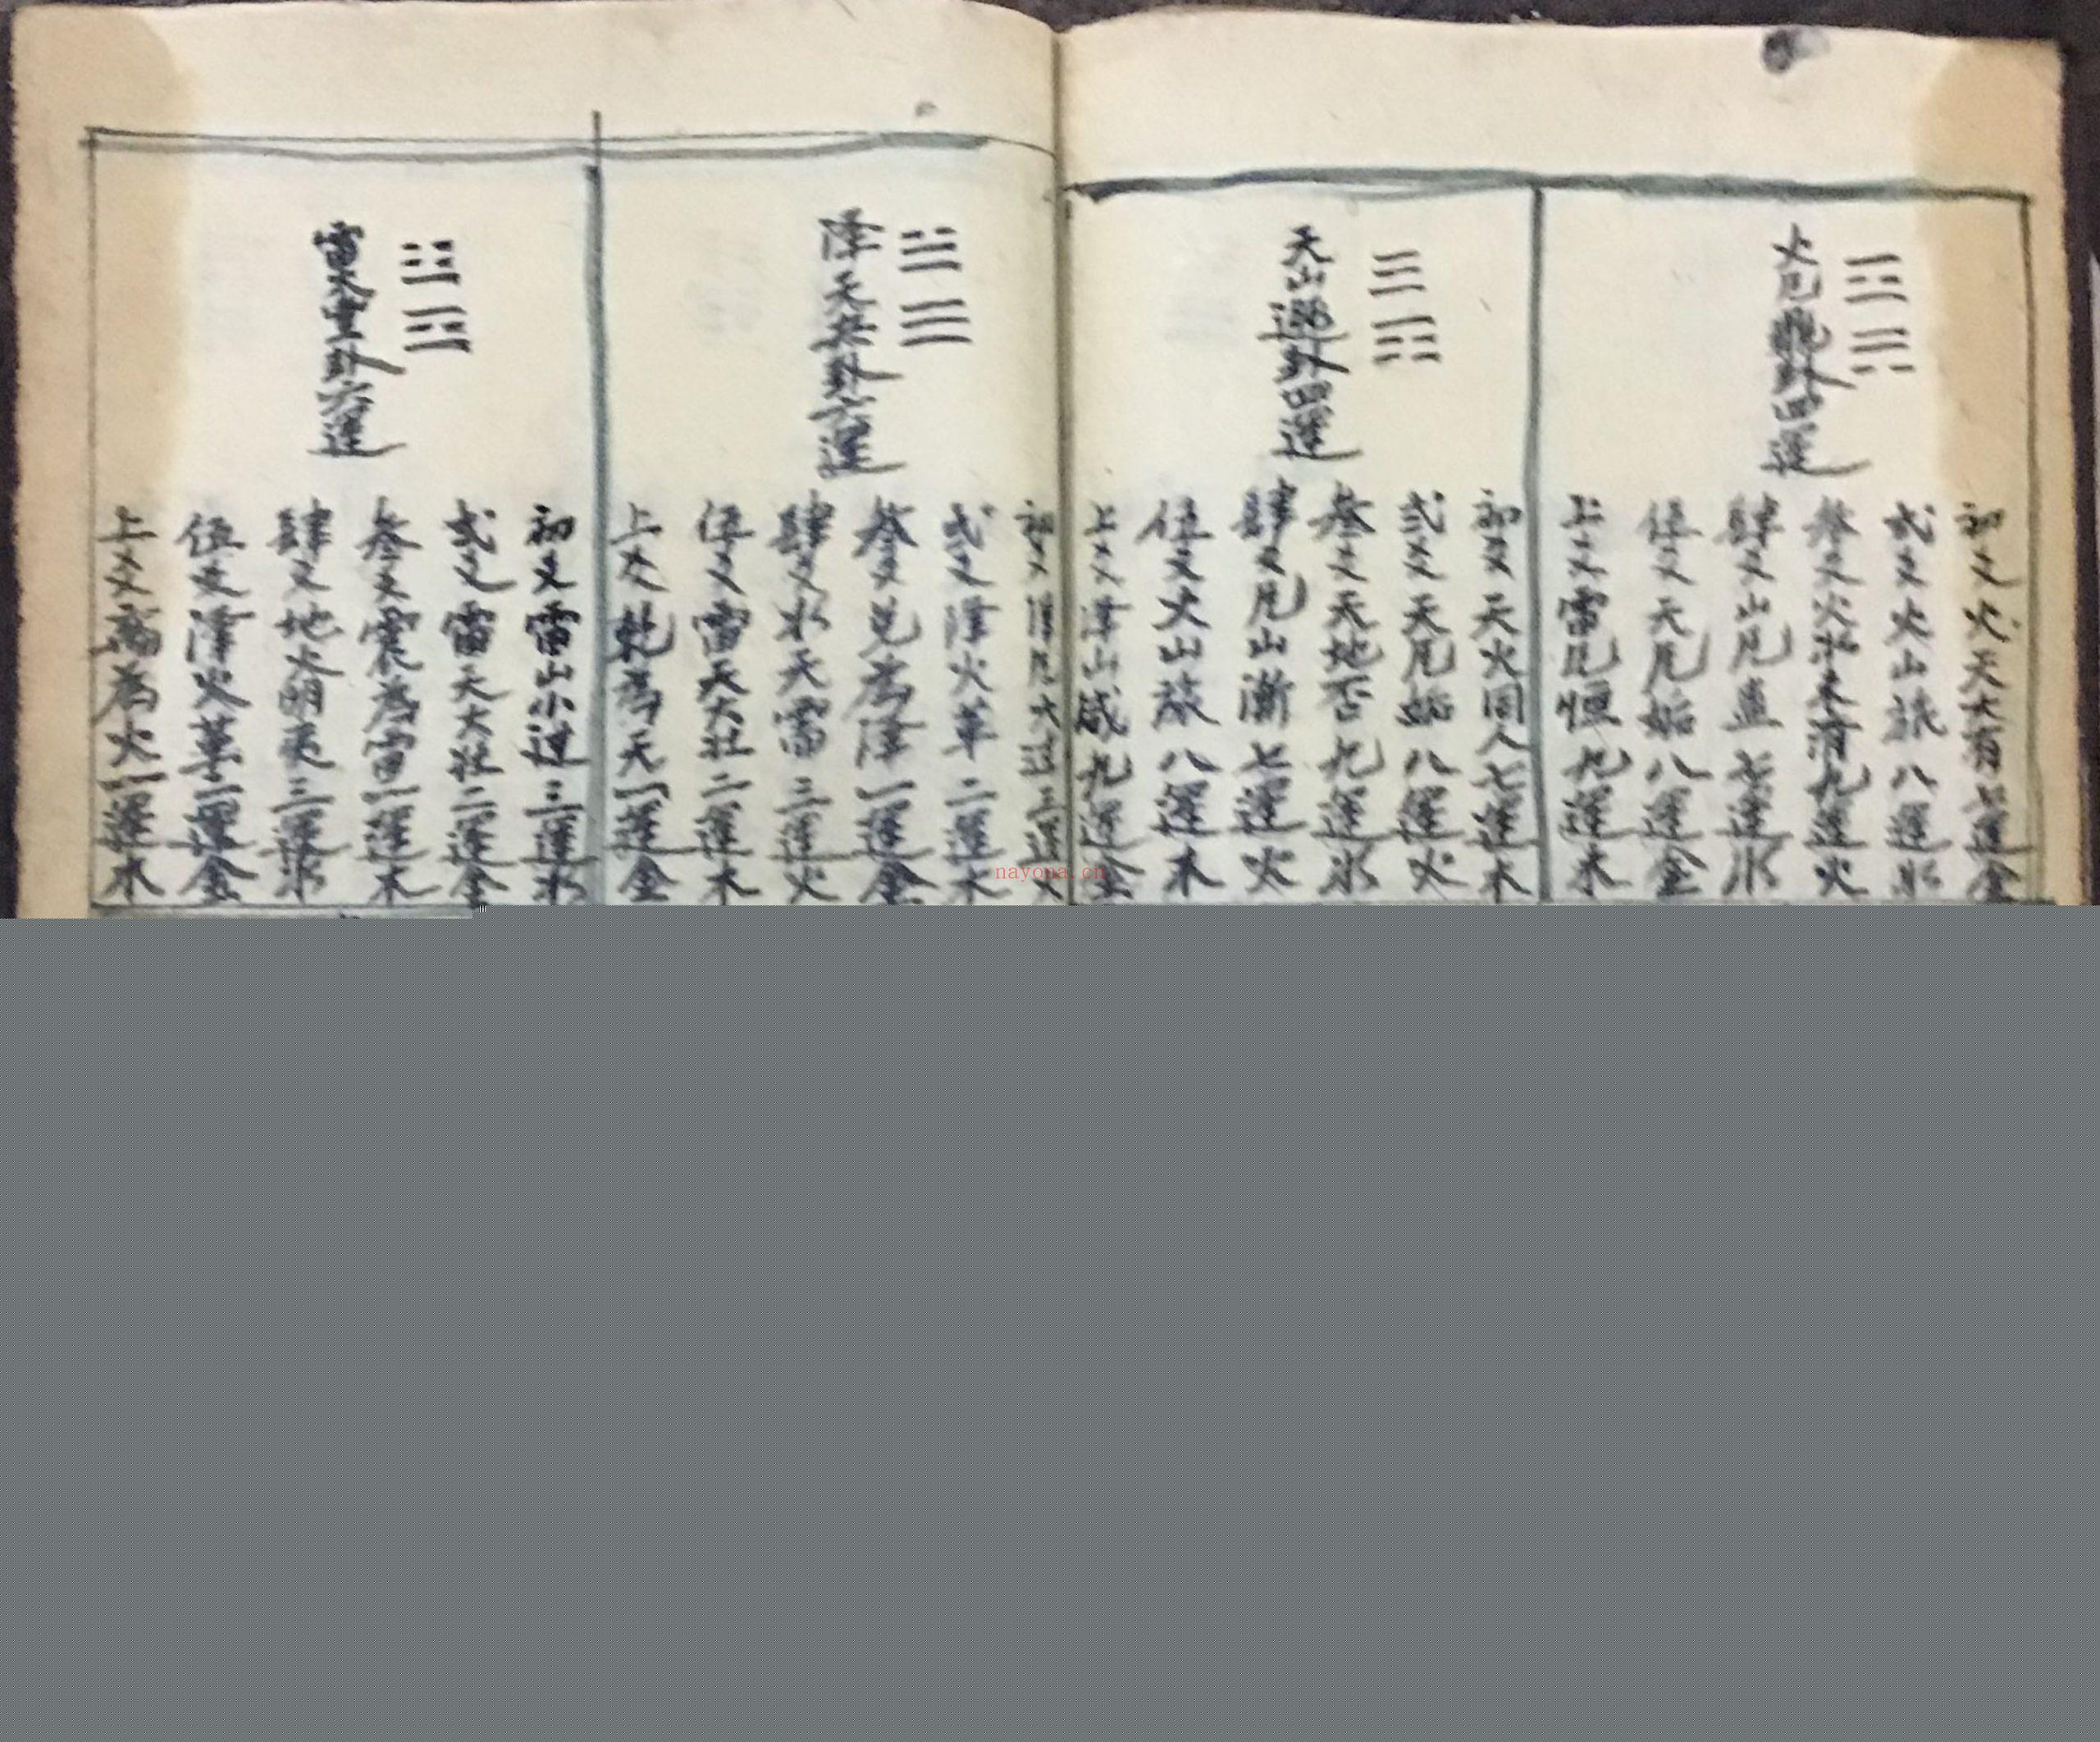 火風鼎卦四運
初爻火天大有七運金
弍爻火山旅八運水
叁爻火水未濟九運火
肆爻山凨蠱七運水
伍爻天凨姤八運金
上爻雷凨恒九運木
天山遯卦四運
初爻天火同人七運木
弍爻天凨姤八運火
叁爻天地否九運水
肆爻凨山漸七運火
伍爻火山旅八運木
上爻澤山咸九運金
澤天夬卦六運
初爻澤凨大过三運火
弍爻澤火革二運木
叁爻兑為澤一運金
肆爻水天需三運火
伍爻雷天大壮二運木
上爻乾為天一運金
雷火豐卦六運
初爻雷山小过三運水
弍爻雷天大壮二運金
叁爻震為雷一運木
肆爻地火明夷三運水
伍爻澤火革二運金
上爻離為火一運木
nayona.cn